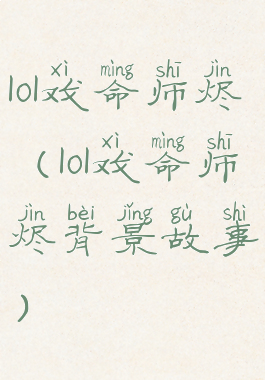 xì mìng shī jìn
lol戏命师烬
xì mìng shī
(lol戏命师
jìn bèi jǐng gù shì
烬背景故事
)